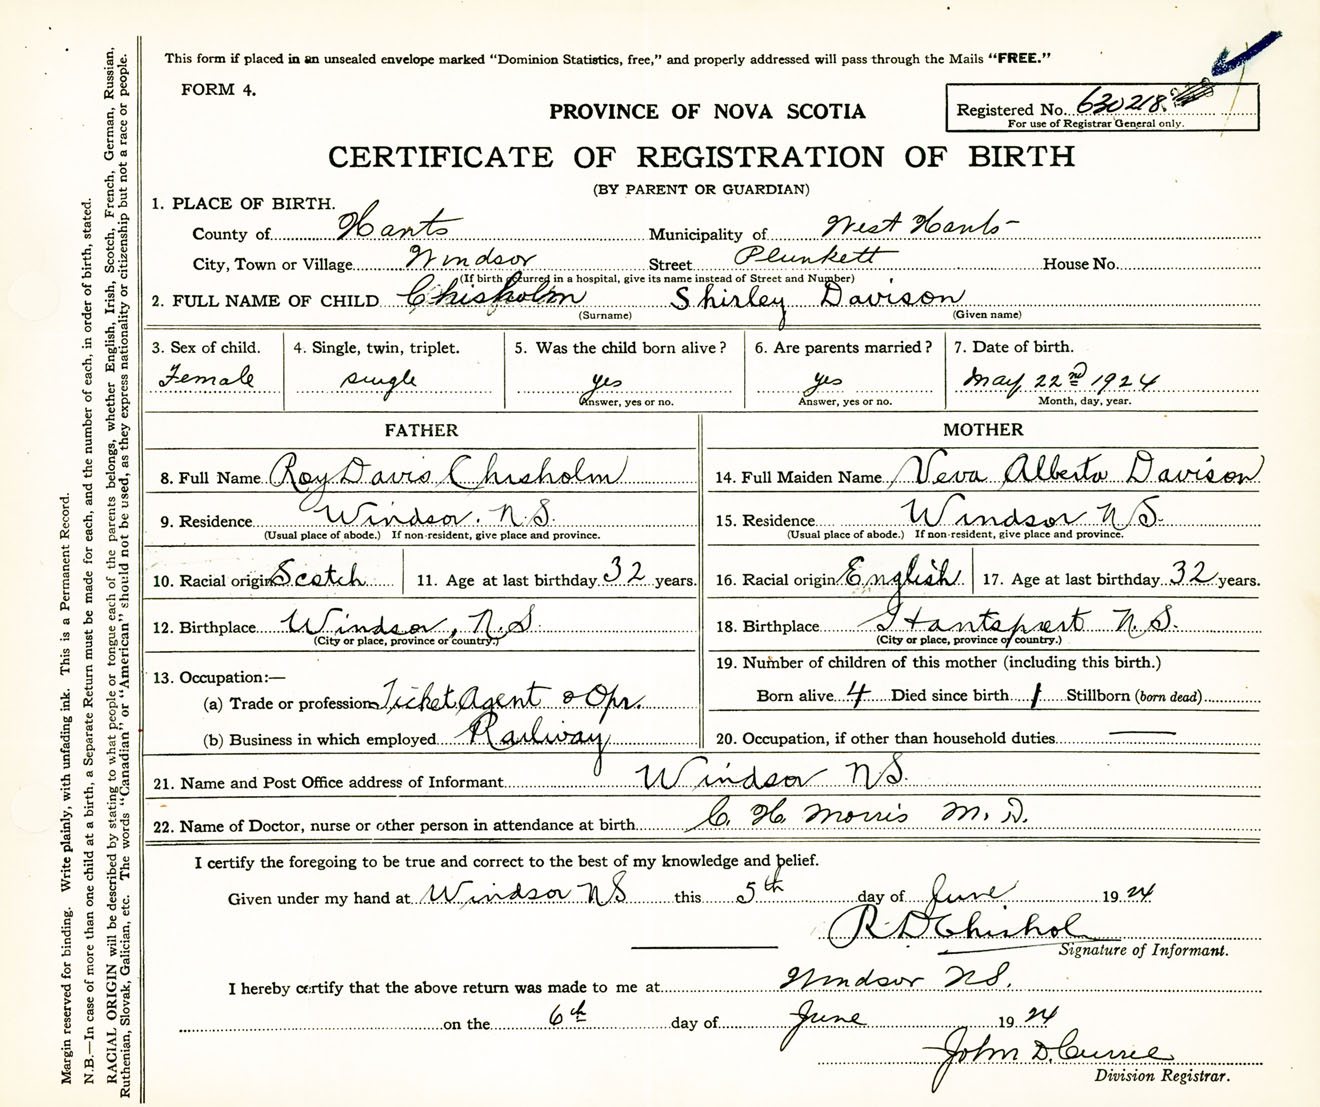 This form if placed in an unsealed envelope marked "Dominion Statistics, free," and properly addressed will pass through the Mails "FREE."
FORM 4.
Registered No. 630218.
For use of Registrar General only.
PROVINCE OF NOVA SCOTIA
CERTIFICATE OF REGISTRATION OF BIRTH
(BY PARENT OR GUARDIAN)
1. PLACE OF BIRTH.
County of Hants Municipality of West Hants
City, Town or Village Windsor Street Plunkett House No.
(If birth occurred in a hospital, give its name instead of Street and Number)
2. FULL NAME OF CHILD Chisholm Shirley Davison
(Surname) (Given name)
3. Sex of child. 4. Single, twin, triplet. 5. Was the child born alive? 6. Are parents married? 7. Date of birth.
Female single yes yes May 22nd 1924
Answer, yes or no. Answer, yes or no. Month, day, year.
FATHER MOTHER
8. Full Name Roy Davis Chisholm 14. Full Maiden Name Veva Alberta Davison
9. Residence Windsor. N.S. 15. Residence Windsor NS.
(Usual place of abode.) If non-resident, give place and province. (Usual place of abode.) If non-resident, give place and province.
10. Racial origin Scotch 11. Age at last birthday 32 years. 16. Racial origin English 17. Age at last birthday 32 years.
12. Birthplace Windsor, N.S. 18. Birthplace Hantsport N.S.
(City or place, province or country.) (City or place, province or country.)
19. Number of children of this mother (including this birth.)
13. Occupation:—
(a) Trade or profession Ticket Agent & Opr. Born alive 4 Died since birth 1 Stillborn (born dead)
(b) Business in which employed Railway 20. Occupation, if other than household duties —
21. Name and Post Office address of Informant Windsor NS.
22. Name of Doctor, nurse or other person in attendance at birth C. H. Morris M. D.
I certify the foregoing to be true and correct to the best of my knowledge and belief.
Given under my hand at Windsor NS this 5th day of June 1924
R D Chishol
Signature of Informant.
I hereby certify that the above return was made to me at Windsor NS.
on the 6th day of June 1924
John D. Currie
Division Registrar.
Margin reserved for binding. Write plainly, with unfading ink. This is a Permanent Record.
N.B.—In case of more than one child at a birth, a Separate Return must be made for each, and the number of each, in order of birth, stated.
RACIAL ORIGIN will be described by stating to what people or tongue each of the parents belongs, whether English, Irish, Scotch, French, German, Russian,
Ruthenian, Slovak, Galician, etc. The words "Canadian" or "American" should not be used, as they express nationality or citizenship but not a race or people.